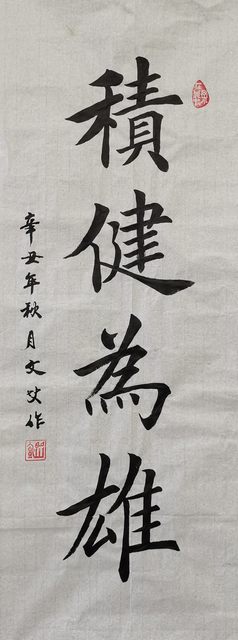 積健為雄
辛丑年秋月文艾作